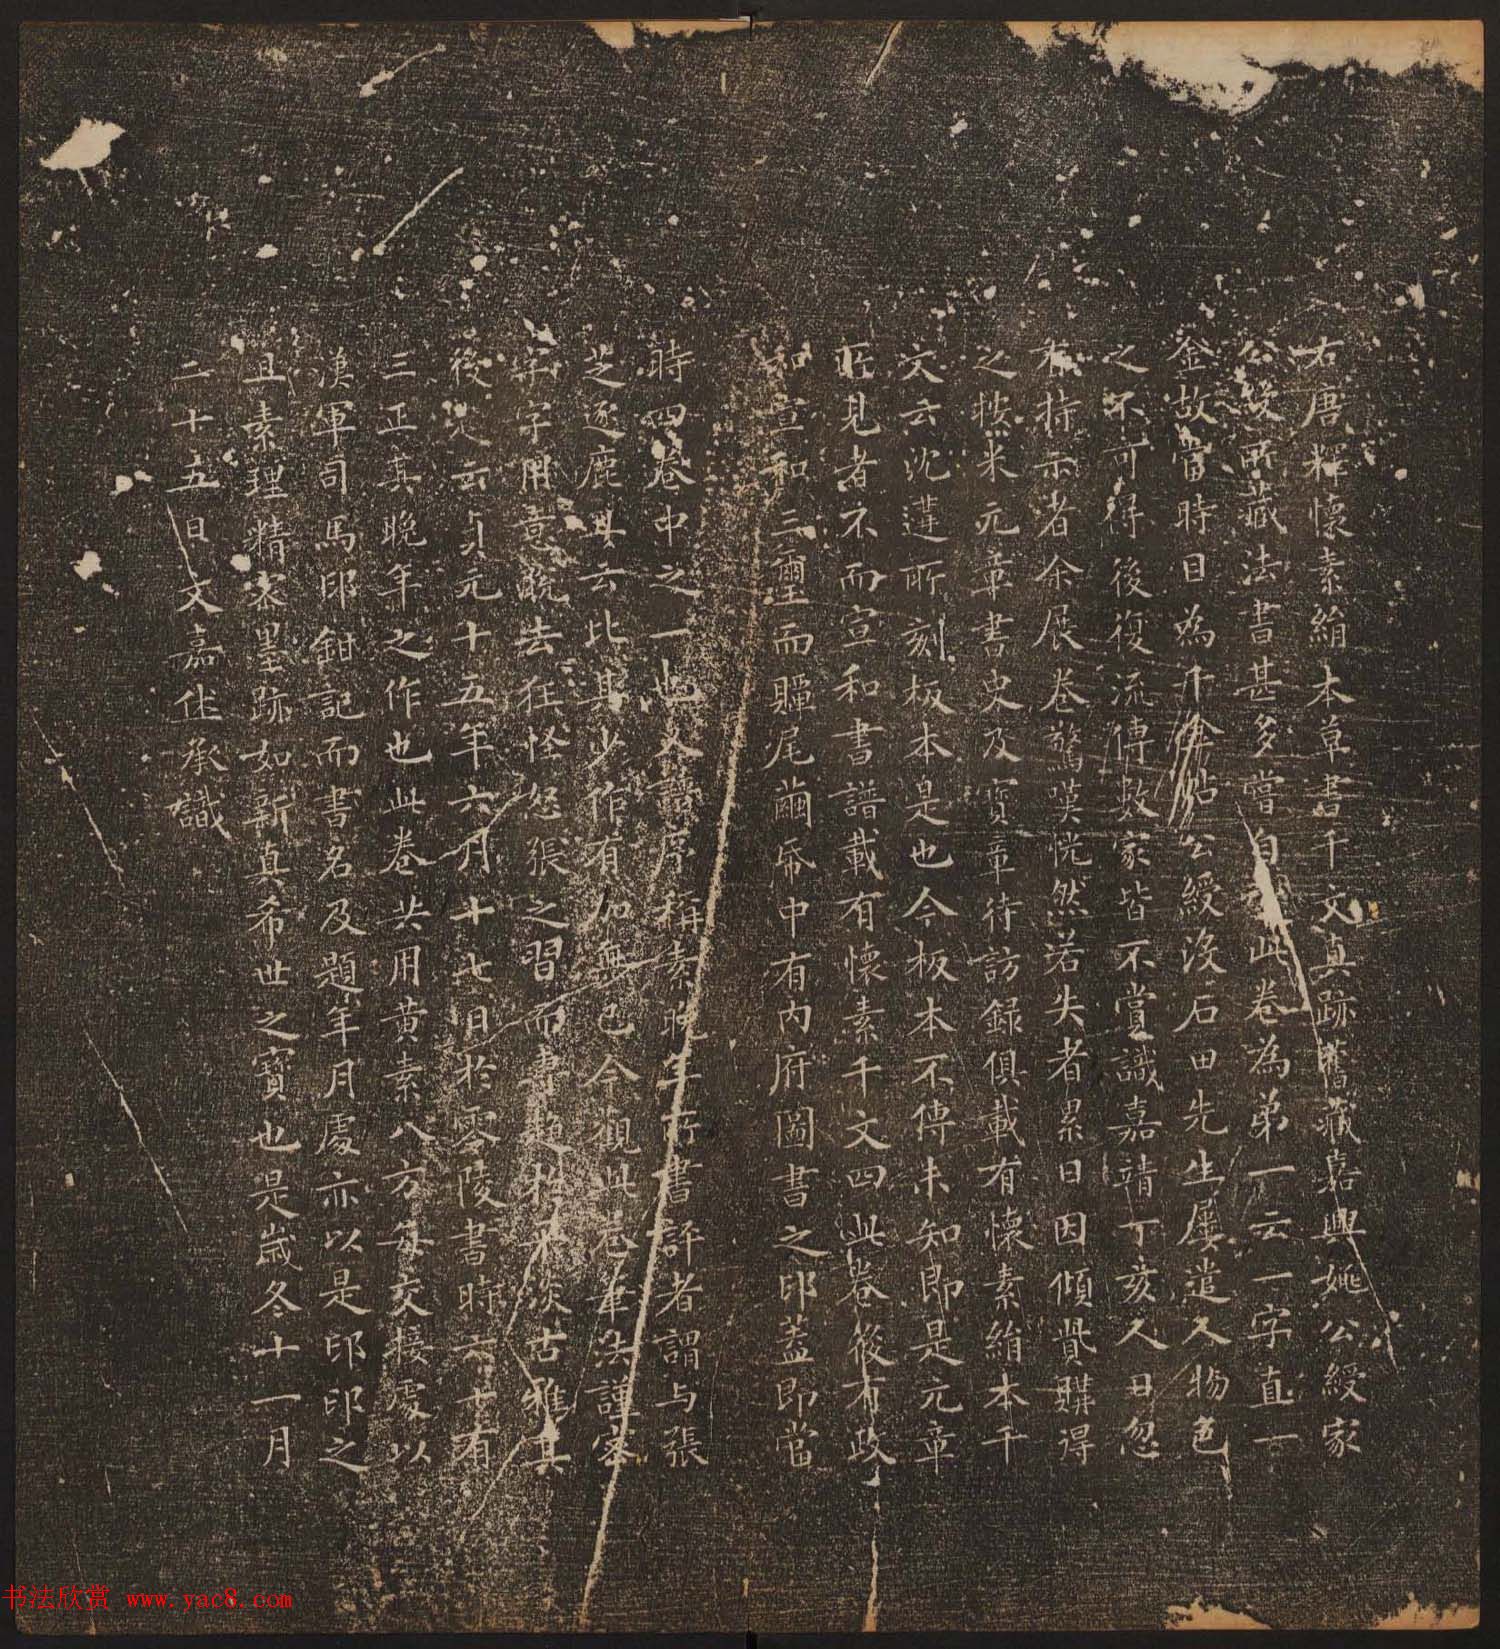 右唐釋懷素絹本草書千文真跡舊藏嘉興姚公綬家
公綬所藏法書甚多嘗自 此卷為弟一云一字直一
金故當時目為千金帖公綬沒石田先生屢遣人物色
之不可得後復流傳數家皆不賞識嘉靖丁亥人日忽
有持示者余展卷驚嘆恍然若失者累日因傾貲購得
之按米元章書史及寶章待訪錄俱載有懷素絹本千
文云沈遘所刻板本是也今板本不傳未知即是元章
所見者不而宣和書譜載有懷素千文四此卷後有政
和宣和三璽而贉尾繭帋中有內府圖書之印蓋即當
時四卷中之一也 譜序稱素晚年所書評者謂与張
芝逐鹿 云此其少作有加無已今觀此卷筆法謹密
字字用意脫去狂怪怒張之習而專趨於平淡古雅其
後 云貞元十五年六月十七日於零陵書時六十有
三正其晚年之作也此卷共用黃素八方每交接處以
漢軍司馬印鉗記而書名及題年月處亦以是印印之
且素理精密墨跡如新真希世之寶也是歲冬十一月
二十五日文嘉 承識
书法欣赏 www.yac8.com